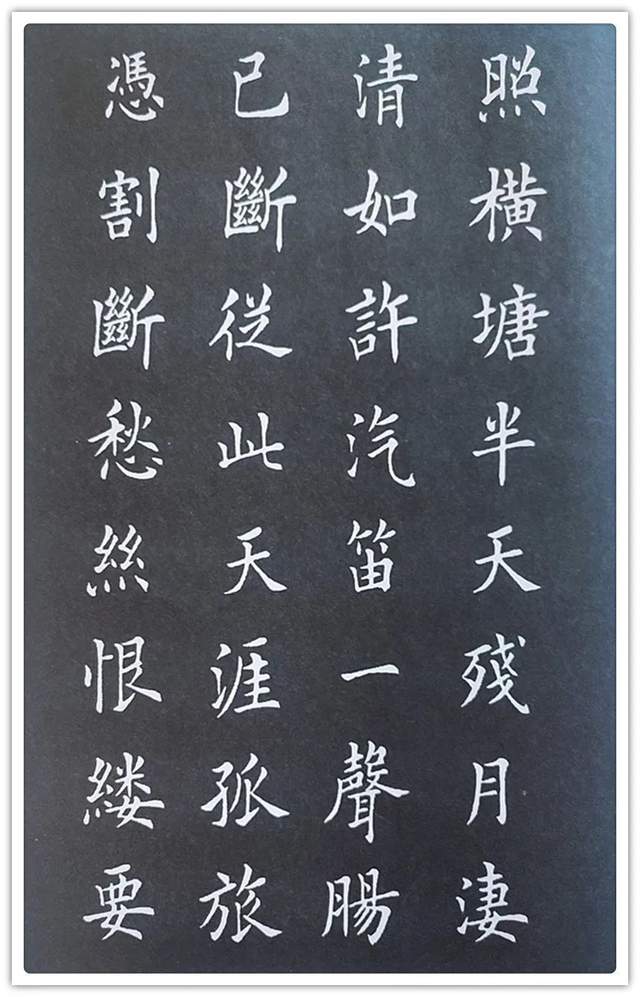 照橫塘半天殘月淒
清如許汽笛一聲腸
已斷從此天涯孤旅
憑割斷愁絲恨縷要